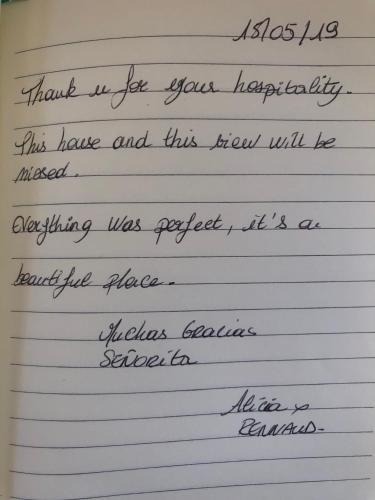 18/05/19
Thank u for your hospitality.
This house and this view will be
missed.
Everything was perfect, it's a
beautiful place.
Muchas Gracias
SEÑORITA
Alicia x
RENNAUD-